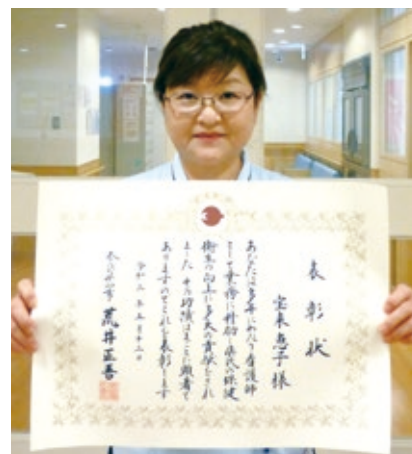 表彰状
宝来恵子様
あなたは多年にわたり看護師
として業務に精励し県民の保健
衛生の向上に多大の貢献をされ
ました その功績はまことに顕著で
ありますのでこれを表彰します
令和元年五月十二日
奈良県知事 荒井正吾